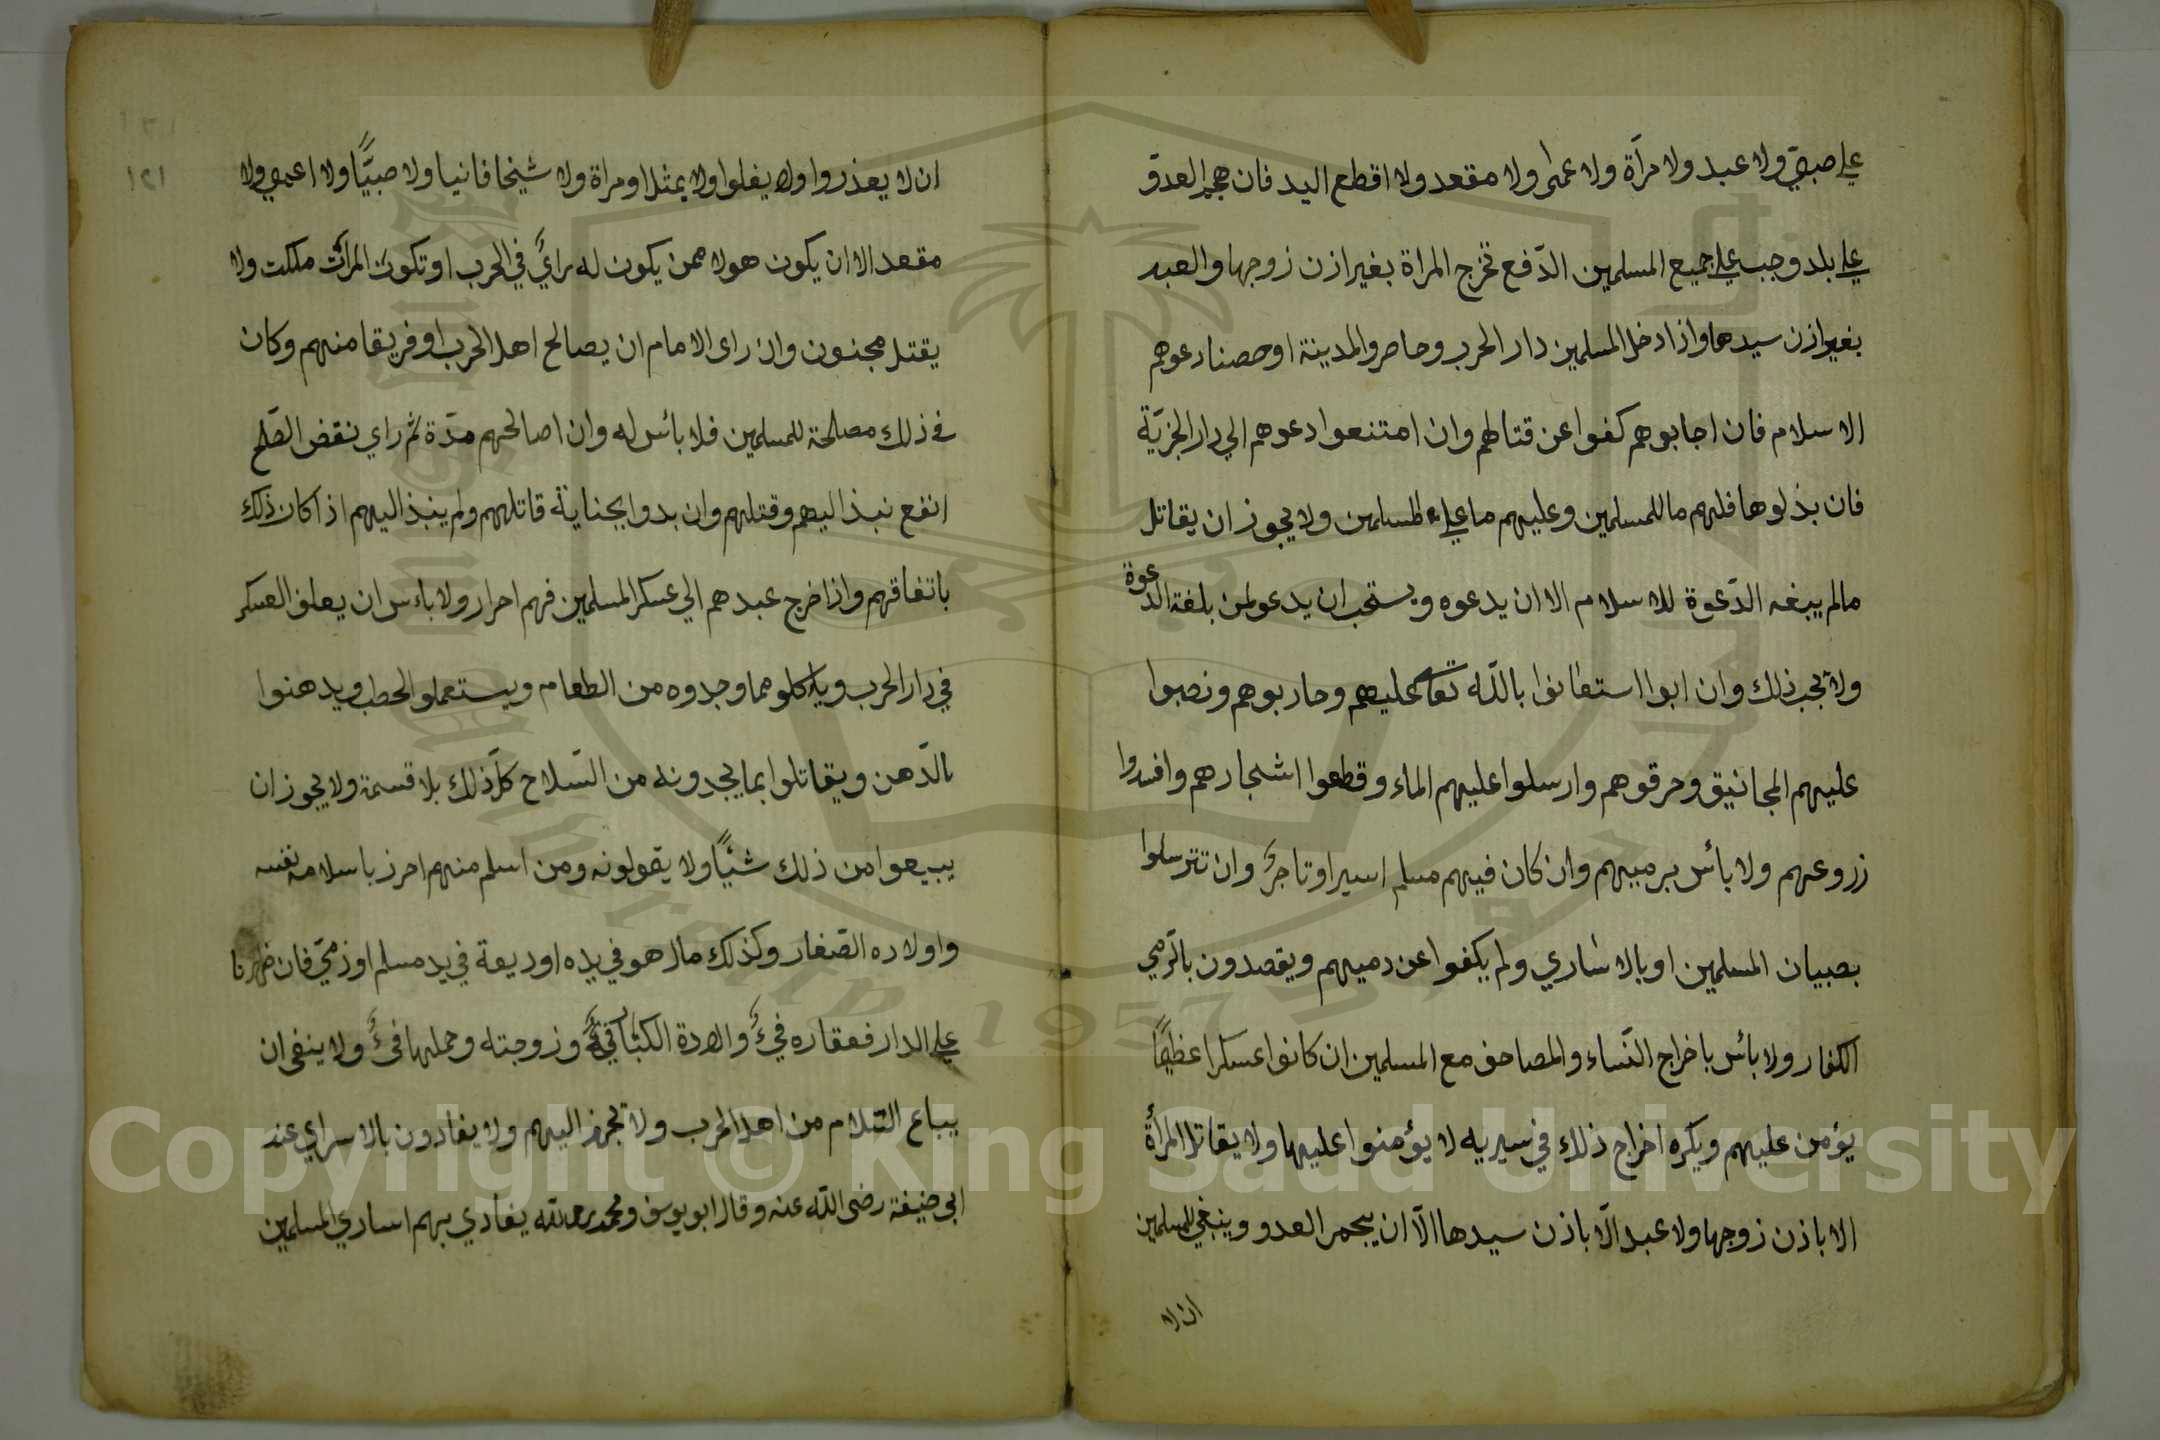 علي صبي ولا عبد ولا مرأة ولا عمى ولا مقعد ولا اقطع اليد فان هجم العدوّ
علي بلد وجب علي جميع المسلمين الدّفع تخرج المراة بغير اذن زوجها والعبد
بغير اذن سيدها واذا دخل المسلمين دار الحرب وحاصروا المدينة او حصنا دعوهم
الاسلام فان اجابوهم كفوا عن قتالهم وان امتنعوا دعوهم الي دار الجزيّة
فان بذلوها فلهم ما للمسلمين وعليهم ما علي المسلمين ولا يجوز ان يقاتل
مالم يبغه الدّعوة للاسلام الا ان يدعوه ويستحب ان يدعو لمن بلغة الدّعوة
ولا يجب ذلك وان ابوا استعانوا بالله تعا عليهم وحاربوهم ونصبوا
عليهم المجانيق وحرقوهم وارسلوا عليهم الماء وقطعوا اشجارهم وافسدوا
زروعهم ولا بائس برميهم وان كان فيهم مسلم اسير او تاجر وان تترسلوا
بصبيان المسلمين او بالاساري ولم يكفوا عن رميهم ويقصدون بالرّمي
الكفار ولا بائس باخراج النّساء والمصاحف مع المسلمين ان كانوا عسكرا عظيمًا
يؤمن عليهم ويكره اخراج ذلك في سيريه لا يؤمنوا عليها ولا يقاتل المرأة
الا باذن زوجها ولا عبد الّا باذن سيدها الّا ان يجمر العدو وينبغي للمسلمين
ان لا
١٢١
ان لا يعذروا ولا يغلوا ولا يمثلا ومراة ولا شيخا فانيا ولا صبيًّا ولا اعمي ولا
مقعد الا ان يكون هولا ممن يكون له راي في الحرب او تكون المرات ملكت ولا
يقتل مجنون وان راى الامام ان يصالح اهل الحرب او فريقا منهم وكان
في ذلك مصلحة للمسلمين فلا بائس له وان اصالحهم مدّة ثم راي نقض الصّلح
انفع نبذ اليهم وقتلهم وان بدوا بجناية قاتلهم ولم ينبذ اليهم اذا كان ذلك
باتفاقهم واذا خرج عبدهم الي عسكر المسلمين فهم احرار ولا باءس ان يعلف العسكر
في دار الحرب ويأكلو مما وجدوه من الطعام ويستعملو الحطب ويدهنوا
بالدّهن ويقاتلوا بما يجدونه من السّلاح كل ذلك بلا قسمة ولا يجوز ان
يبيعوا من ذلك شيًّا ولا يقولونه ومن اسلم منهم احرز باسلامه نفسه
واولاده الصّغار وكذلك مال هو في يده او ديعة في يد مسلم او ذمّي فان ظهرنا
علي الدار فعقاره فيئ والادة الكبّا فئة وزوجته وحملها فئ ولا ينفي ان
يباع السّلام من اهل الحرب ولا تجهز اليهم ولا يفادون بالاسراي عند
ابي حنيفة رضى الله عنه وقال ابو يوسف ومحمد رحمه الله يفادي بهم اساري المسلمين
Copyright © King Saud University
1957